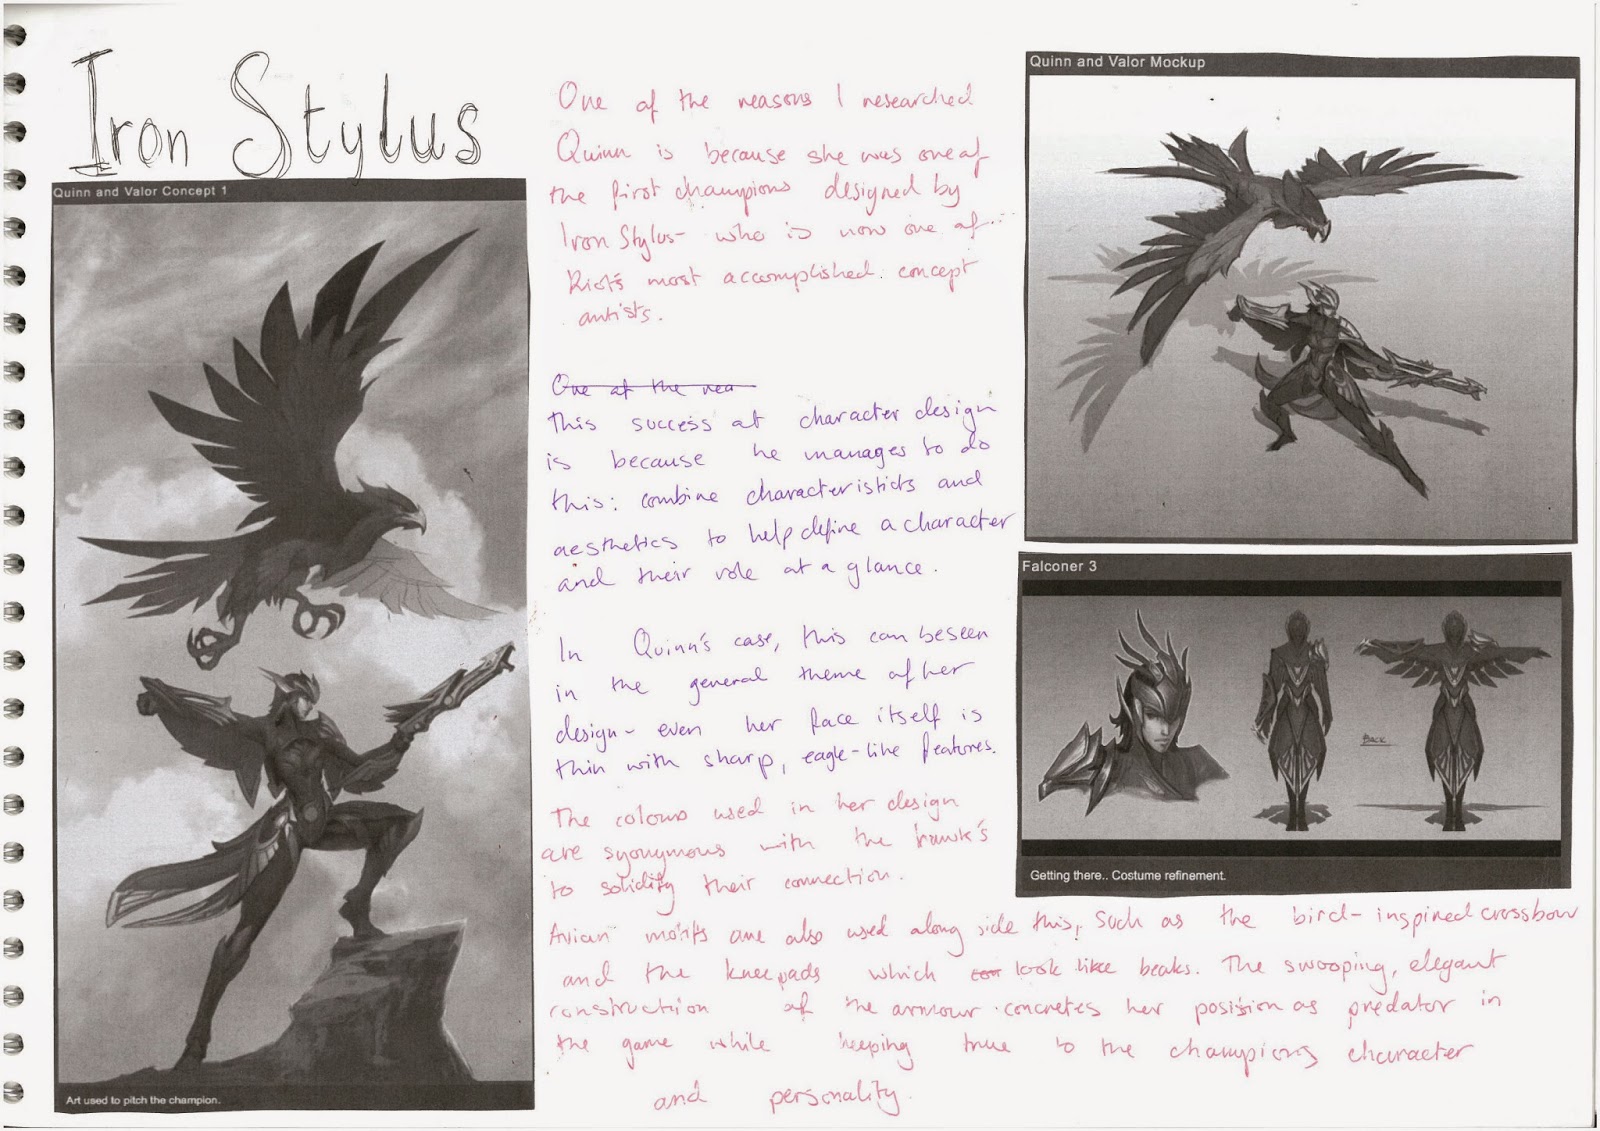 Iron Stylus
Quinn and Valor Concept 1
Art used to pitch the champion.
One of the reasons I researched
Quinn is because she was one of
the first champions designed by
Iron Stylus- who is now one of
Riot's most accomplished concept
artists.
One of the rea
This success at character design
is because he manages to do
this: combine characteristicts and
aesthetics to help define a character
and their role at a glance.
In Quinn's case, this can be seen
in the general theme of her
design- even her face itself is
thin with sharp, eagle-like features.
The colours used in her design
are syonymous with the hawk's
to solidify their connection.
Avian motifs are also used along side this, such as the bird-inspired crossbow
and the kneepads which look like beaks. The swooping, elegant
construction of the armour concretes her position as predator in
the game while keeping true to the champions character
and personality.
Quinn and Valor Mockup
Falconer 3
BACK
Getting there.. Costume refinement.